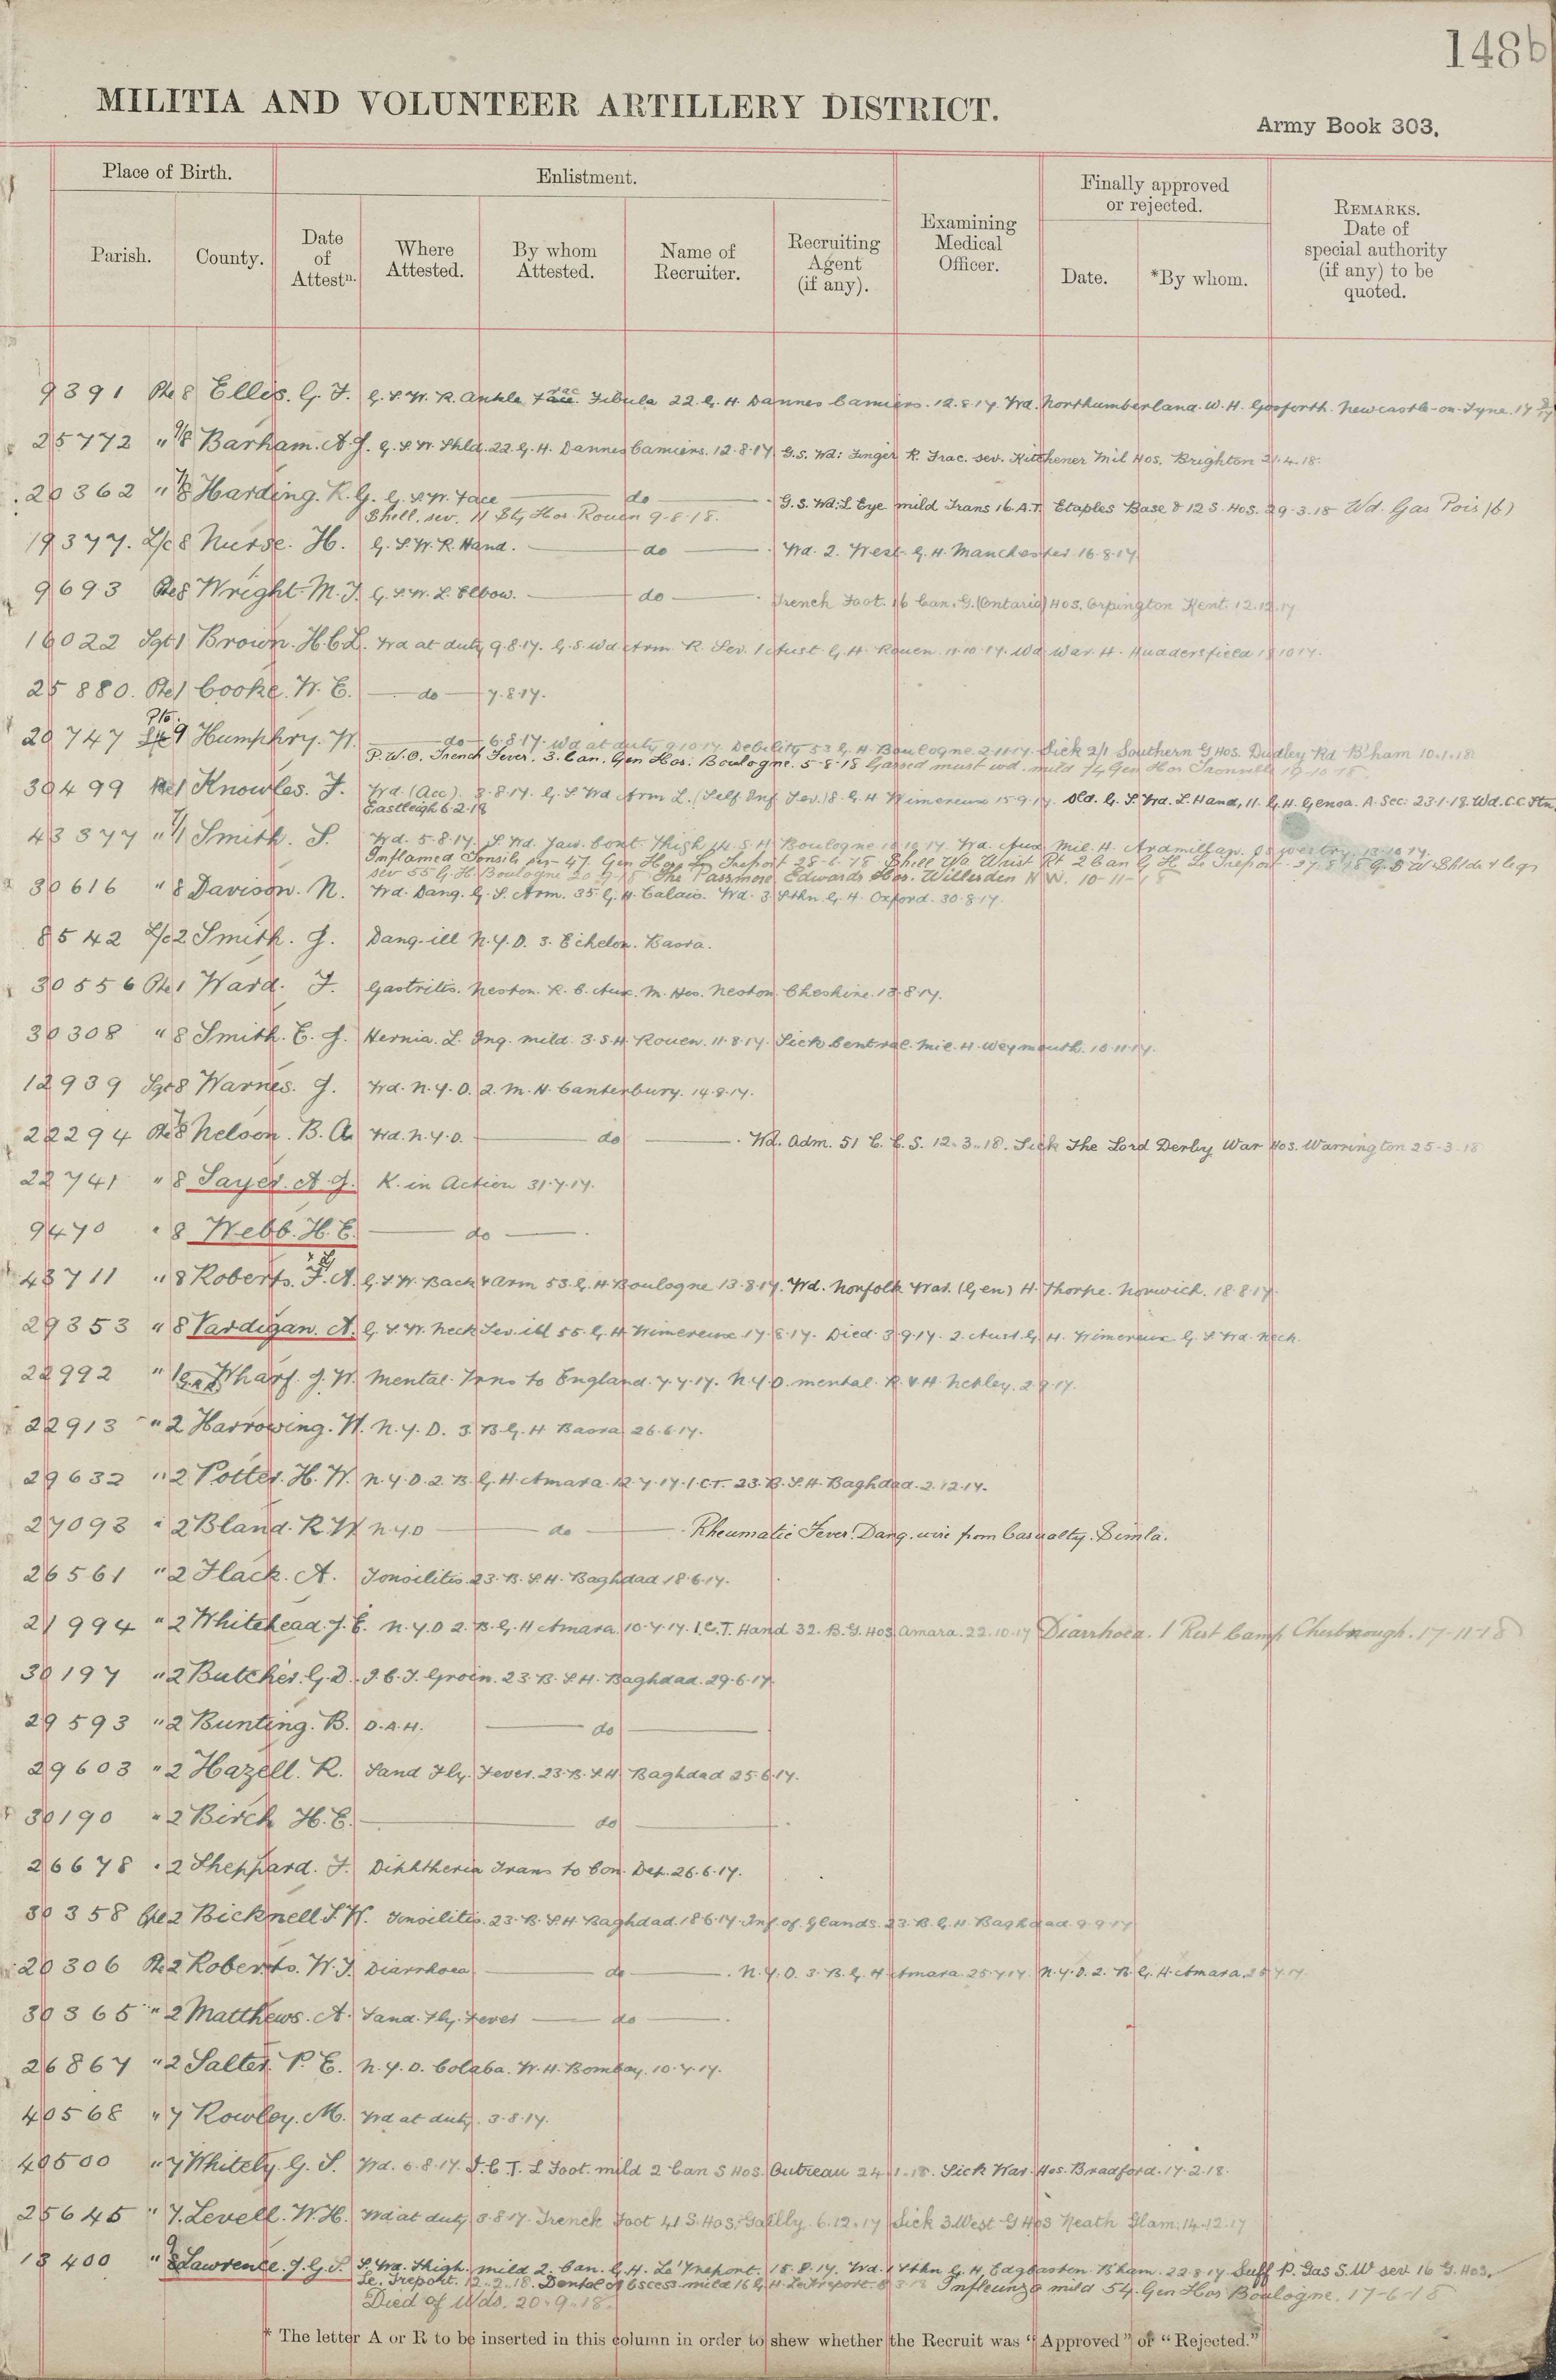 148b
MILITIA AND VOLUNTEER ARTILLERY DISTRICT.
Army Book 303.
Place of Birth.
Enlistment.
Finally approved or rejected.
REMARKS. Date of special authority (if any) to be quoted.
Parish.
County.
Date of Attestn.
Where Attested.
By whom Attested.
Name of Recruiter.
Recruiting Agent (if any).
Examining Medical Officer.
Date.
*By whom.
9391 Pte 8 Ellis. G. F. G.S.W. R. Ankle Frac. Fibula 22. G. H. Dannes Camiers. 12.8.17 Wd. Northumberland. W. H. Gosforth. Newcastle-on-Tyne. 17
25772 " 7/8 Barham. A. J. G.S.W. Shld. 22. G. H. Dannes Camiers. 12.8.17 G.S. Wd: Finger R. Frac. sev. Kitchener Mil Hos. Brighton 21.4.18.
20362 " 7/8 Harding. R. G. G.S.W. Face do G.S. Wd: L Eye mild Trans 16 A.T. Etaples Base & 12 S. Hos. 29.3.18 Wd. Gas Pois (6)
Shell. sev. 11 Sty Hos Rouen 9-8-18.
19377. L/c 8 Nurse. H. G.S.W. R. Hand. do Wd. 2. West. G. H. Manchester. 16.8.17
9693 Pte 8 Wright. M. J. G.S.W. L. Elbow. do Trench Foot. 16 Can. G. (Ontario) Hos. Orpington Kent. 12.12.17
16022 Sgt 1 Brown. H. C. L. Wd at duty 9.8.17. G.S. Wd Arm R. Sev. 1 Aust. G. H. Rouen. 11.10.17. Wd War. H. Huddersfield 18.10.17.
25880. Pte 1 Cooke. W. E. do 7.8.17.
20747 Pte. 9 Humphry. W. do 6.8.17. Wd at duty 9.10.17. Debility 53 G. H. Boulogne. 2.11.17. Sick 2/1 Southern G Hos. Dudley Rd B'ham 10.1.18
P.U.O. Trench Fever. 3. Can. Gen Hos: Boulogne. 5-8-18 Gassed must wd. mild 74 Gen Hos Trouville 19-10-18.
30499 Pte 1 Knowles. F. Wd. (Acc). 3.8.17. G.S Wd Arm L. (Self Inf Sev.) 8. G. H Wimereux 15.9.17. Sld. G. S. Wd. L. Hand, 11. G. H. Genoa. A. Sec: 23.1.18. Wd. C.C Stn.
Eastleigh 6.2.18
43377 " 7/1 Smith. S. Wd. 5.8.17. S. Wd. Jaw. Cont. Thigh 14. S. H Boulogne 10.10.17. Wd. Aux Mil. H. Ardmillan. Oswestry. 13.10.17.
Inflamed Tonsils sev- 47 Gen Hos Le Treport 28-6-18 Shell Wd. Wrist Rt 2 Can G. H. Le Treport 27.8.18 G S W Shldr & legs
sev 55 G. H. Boulogne 20-9-18 The Passmore Edwards Hos. Willesden N.W. 10-11-18
30616 " 8 Davison. N. Wd. Dang. G. S. Arm. 35 G. H Calais. Wd. 3 Sthn G. H. Oxford. 30.8.17.
8542 L/c 2 Smith. J. Dang. ill N.Y.D. 3. Echelon. Basra.
30556 Pte 1 Ward. F. Gastritis. Neston. R. C. Aux. M. Hos. Neston. Cheshire. 13.8.17.
30308 " 8 Smith. E. J. Hernia. L. Ing. mild. 3. S. H Rouen. 11.8.17. Sick Central. Mil. H. Weymouth. 10.11.17.
12939 Sgt 8 Warnes. J. Wd. N.Y.D. 2. M. H. Canterbury. 14.8.17.
22294 Pte 7/8 Nelson. B. A. Wd. N.Y.D. do Wd. Adm. 51 C. C. S. 12.3.18. Sick The Lord Derby War Hos. Warrington 25-3-18
22741 " 8 Sayer. A. J. K. in Action 31.7.17.
9470 " 8 Webb. H. E. do
43711 " 8 Roberts. F. A. G.S.W. Back & Arm 53. G. H Boulogne 13.8.17. Wd. Norfolk War. (Gen) H. Thorpe. Norwich. 18.8.17
29353 " 8 Vardigan. A. G.S.W. Neck Sev. ill 55. G. H Wimereux 17.8.17. Died 3.9.17. 2. Aust. G. H. Wimereux G.S. Wd. Neck.
22992 " 1 Wharf. J. W. Mental. Trns to England. 7.7.17. N.Y.D. mental. R. V. H. Netley. 2.9.17.
22913 " 2 Harrowing. W. N.Y.D. 3. B. G. H Basra 26.6.17.
29632 " 2 Potter. H. W. N.Y.D. 2. B. G. H. Amara. 12.7.17. I.C.T. 23. B. S. H. Baghdad. 2.12.17.
27093 " 2 Bland. R. W N.Y.D do Rheumatic Fever. Dang. wire from Casualty. Simla.
26561 " 2 Flack. A. Tonsilitis. 23. B. S. H. Baghdad 18.6.17.
21994 " 2 Whitehead. J. E. N.Y.D 2. B. G. H Amara. 10.7.17. I.C.T. Hand 32. B. G. Hos Amara. 22.10.17 Diarrhoea. 1 Rest Camp Cherbrough. 17-11-18
30197 " 2 Butcher. G. D. I.C.T. Groin. 23. B. S. H. Baghdad. 29.6.17.
29593 " 2 Bunting. B. D.A.H. do
29603 " 2 Hazell. R. Sand Fly. Fever. 23. B. S. H Baghdad 25.6.17.
30190 " 2 Birch H. E. do
26678 " 2 Sheppard. F. Diphtheria Trans to Con. Dep. 26.6.17.
30358 Cpl 2 Bicknell S. W. Tonsilitis. 23. B. S. H Baghdad. 18.6.17. Inf. of Glands. 23. B. G. H. Baghdad 9.9.17
20306 Pte 2 Roberts. W. J. Diarrhoea do N.Y.D. 3. B. G. H Amara 25.7.17. N.Y.D. 2. B. G. H. Amara. 25.7.17.
30365 " 2 Matthews. A. Sand. Fly. Fever do
26867 " 2 Salter. P. E. N.Y.D. Colaba. W. H. Bombay. 10.7.17.
40568 " 7 Rowley. M. Wd at duty. 3.8.17.
40500 " 7 Whitely. G. S. Wd. 6.8.17. I.C.T. L Foot. mild 2 Can S Hos. Outreau 24.1.18. Sick War Hos. Bradford. 17.2.18.
25645 " 7. Levell. W. H. Wd at duty 3.8.17. Trench Foot 41 S. Hos. Gailly. 6.12.17 Sick 3. West G Hos Neath Glam. 14.12.17
18400 " Lawrence. J. G. S. S. Wd. Thigh. mild 2. Can. G. H. Le Treport. 15.8.17. Wd. 1 Sthn G. H. Edgbaston. B'ham. 22.8.17 Suff P. Gas S. W sev 16 G. Hos.
Le. Treport. 12.2.18. Dental abscess mild 16 G. H. Le Treport. 8.3.18 Infleunza mild 54 Gen Hos Boulogne. 17-6-18
Died of Wds. 20.9.18.
* The letter A or R to be inserted in this column in order to shew whether the Recruit was "Approved" or "Rejected."